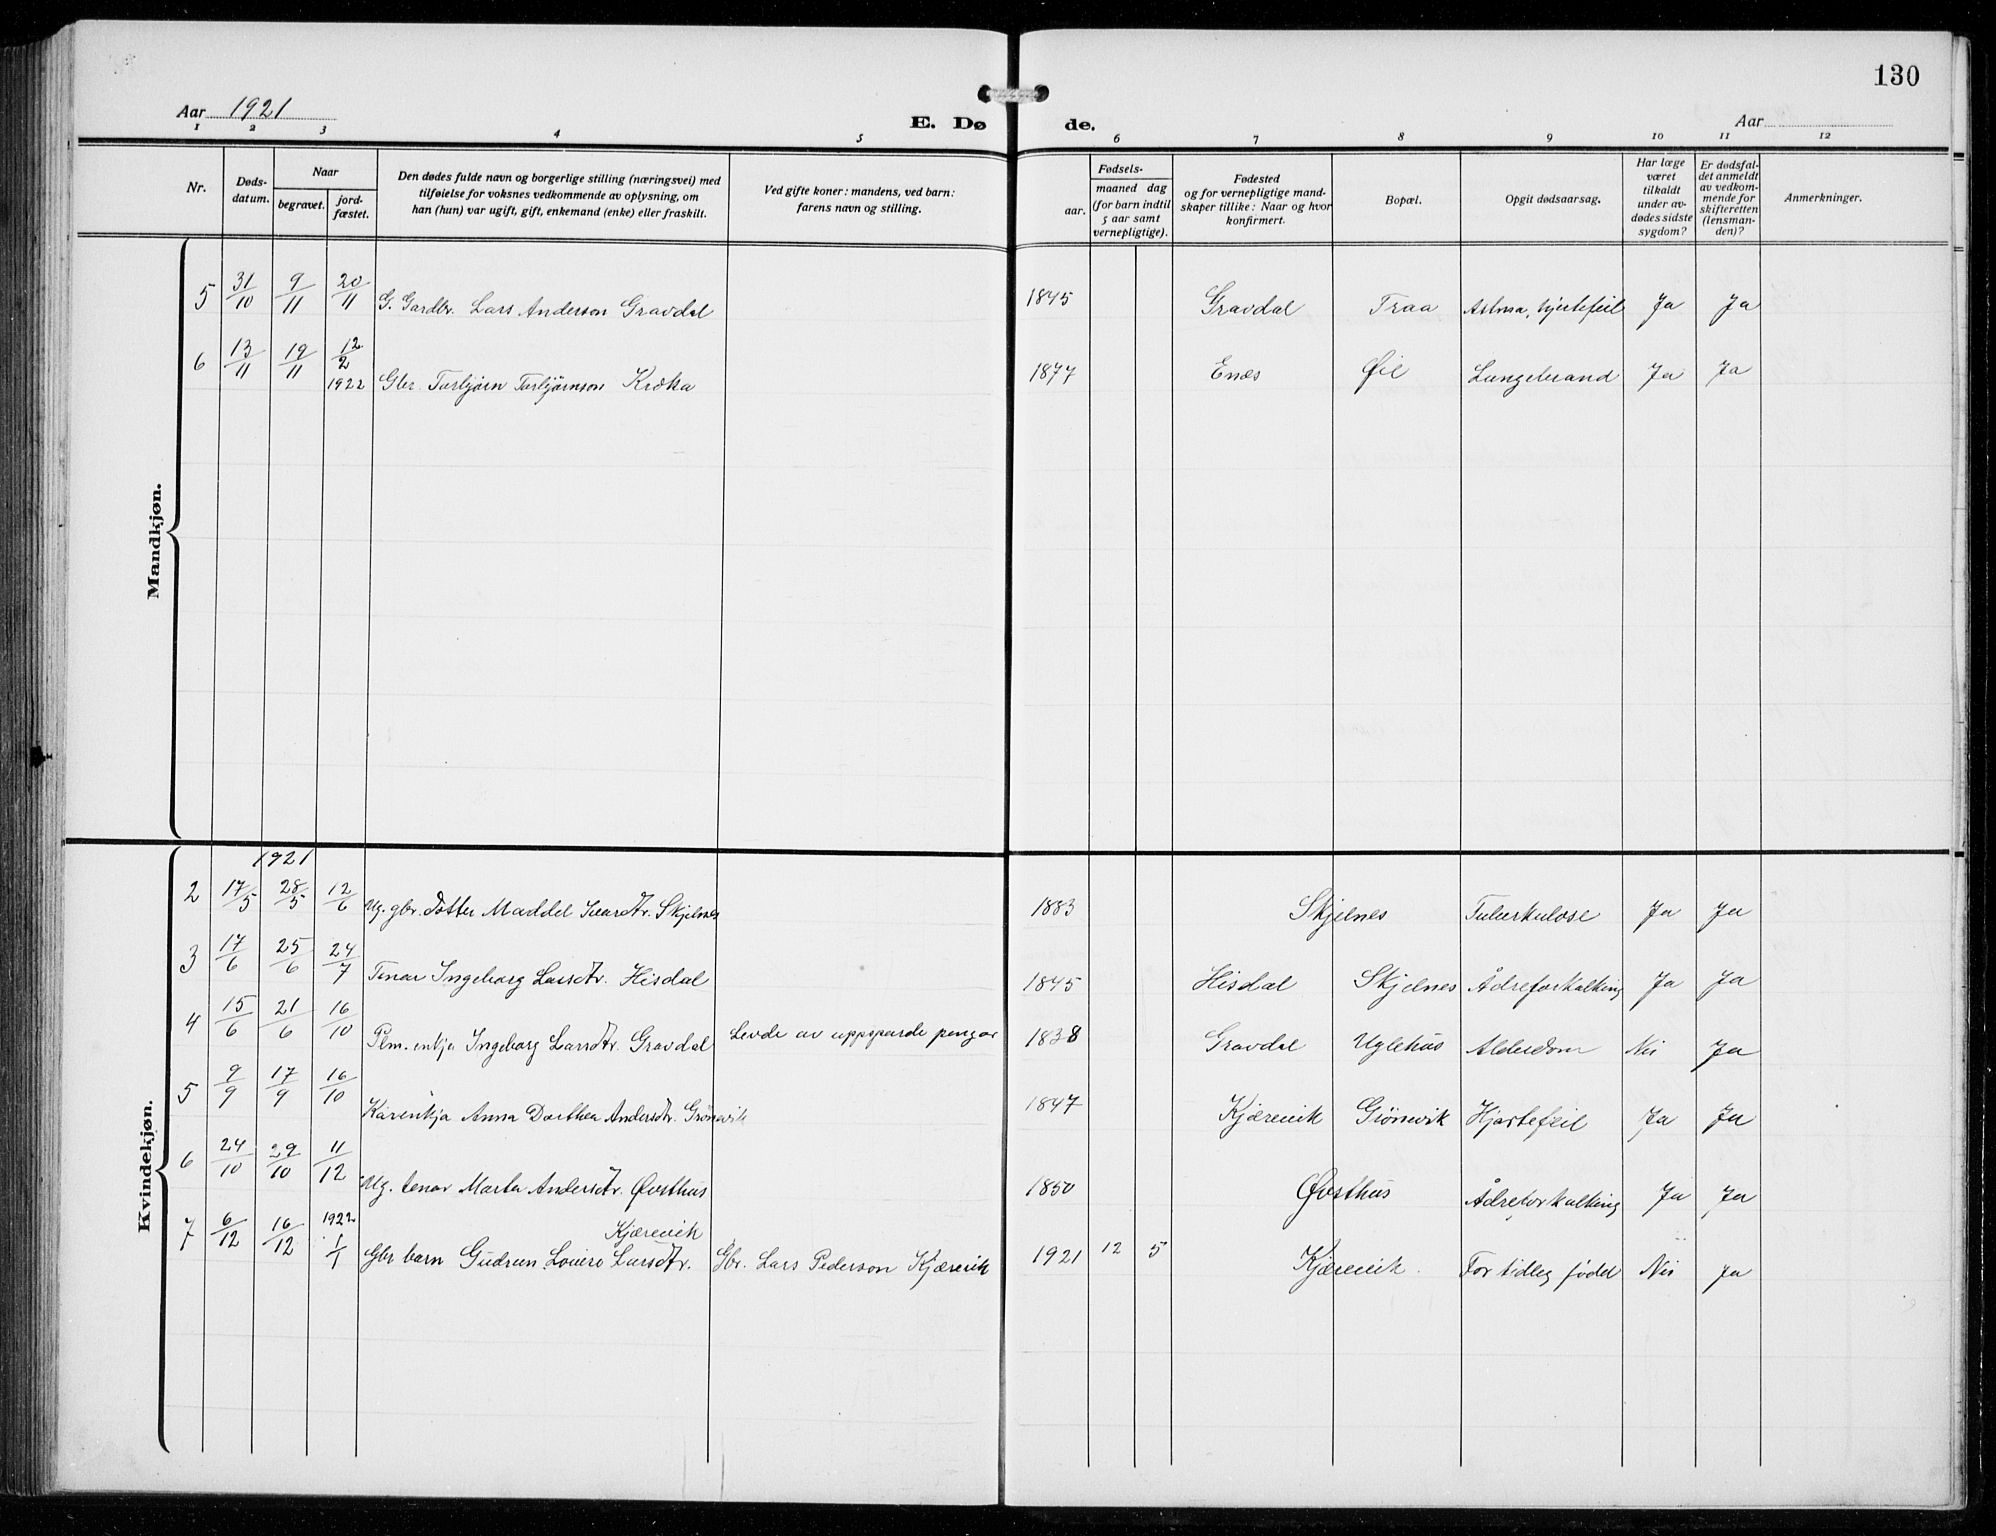 130
Aar 1921
E. Dø de.
Aar
1 2 3 4 5 6 7 8 9 10 11 12
Nr.
Døds-
datum.
Naar
begravet.
jord-
fæstet.
Den dødes fulde navn og borgerlige stilling (næringsvei) med
tilføielse for voksnes vedkommende av oplysning, om
han (hun) var ugift, gift, enkemand (enke) eller fraskilt.
Ved gifte koner: mandens, ved barn:
farens navn og stilling.
Fødsels-
aar.
maaned dag
(for barn indtil
5 aar samt
vernepligtige).
Fødested
og for vernepligtige mand-
skaper tillike: Naar og hvor
konfirmert.
Bopæl.
Opgit dødsaarsag.
Har læge
været
tilkaldt
under av-
dødes sidste
sygdom?
Er dødsfal-
det anmeldt
av vedkom-
mende for
skifteretten
(lensman-
den)?
Anmerkninger.
Mandkjøn.
5 31/10 9/11 20/11 G. Gardbr. Lars Anderson Gravdal 1845 Gravdal Traa Astma, hjertefeil Ja Ja
6 13/11 19/11 12/2 1922 Gbr. Torbjørn Torbjørnson Kræka 1877 Enæs Øie Lungebrand Ja Ja
Kvindekjøn.
1921
2 17/5 28/5 12/6 Ug. gbr. dotter Maddel Ivarsdtr. Skjelnes 1883 Skjelnes Tuberkulose Ja Ja
3 17/6 25/6 24/7 Tenar Ingeborg Larsdtr. Hisdal 1845 Hisdal Skjelnes Ådreforkalking Ja Ja
4 15/6 21/6 16/10 Plm. enkja Ingeborg Larsdtr. Gravdal Levde av uppsparde pengar 1838 Gravdal Uglehus Alderdom Nei Ja
5 9/9 17/9 16/10 Kårenkja Anna Dorthea Andersdtr. Grönevik 1847 Kjærevik Grönevik Hjartefeil Ja Ja
6 24/10 29/10 11/12 Ug. tenar Marta Andersdtr. Øvsthus 1850 Øvsthus Ådreforkalking Ja Ja
7 6/12 16/12 1922 1/1 Gbr barn Gudrun Larsdtr. Kjærevik Gbr. Lars Pederson Kjærevik 1921 12 5 Kjærevik. For tidleg fødd Nei Ja